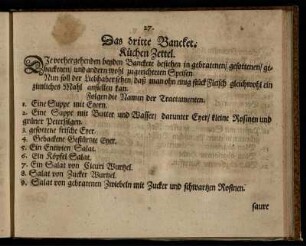 27.
Das dritte Bancket.
Küchen Zettel.
Die vorhergehenden beyden Banckete bestehen in gebratenen/ gesottenen/ ge-
backenen/ und andern wohl zugerichteten Speisen.
Nun soll der Liebhaber sehen, daß man ohn einig stück Fleisch gleichwohl ein
zimliches Mahl anstellen kan.
Folgen die Namen der Tractamenten.
1. Eine Suppe mit Eyern.
2. Eine Suppe mit Butter und Wasser/ darunter Eyer/ kleine Rosinen und
grüner Petersilgen.
3. gesottene frische Eyer.
4. Gebackene Eyer.
5. Ein Entivien Salat.
6. Ein Köpfel Salat.
7. Ein Salat von Wurtzel.
8. Salat von Zucker Wurtzel.
9. Salat von gebratenen Zwiebeln mit Zucker und schwartzen Rosinen.
saure